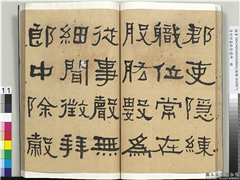 郡吏隱練
職位常在
股肱數為
從事聲無
細聞徵拜
郎中除穀
11